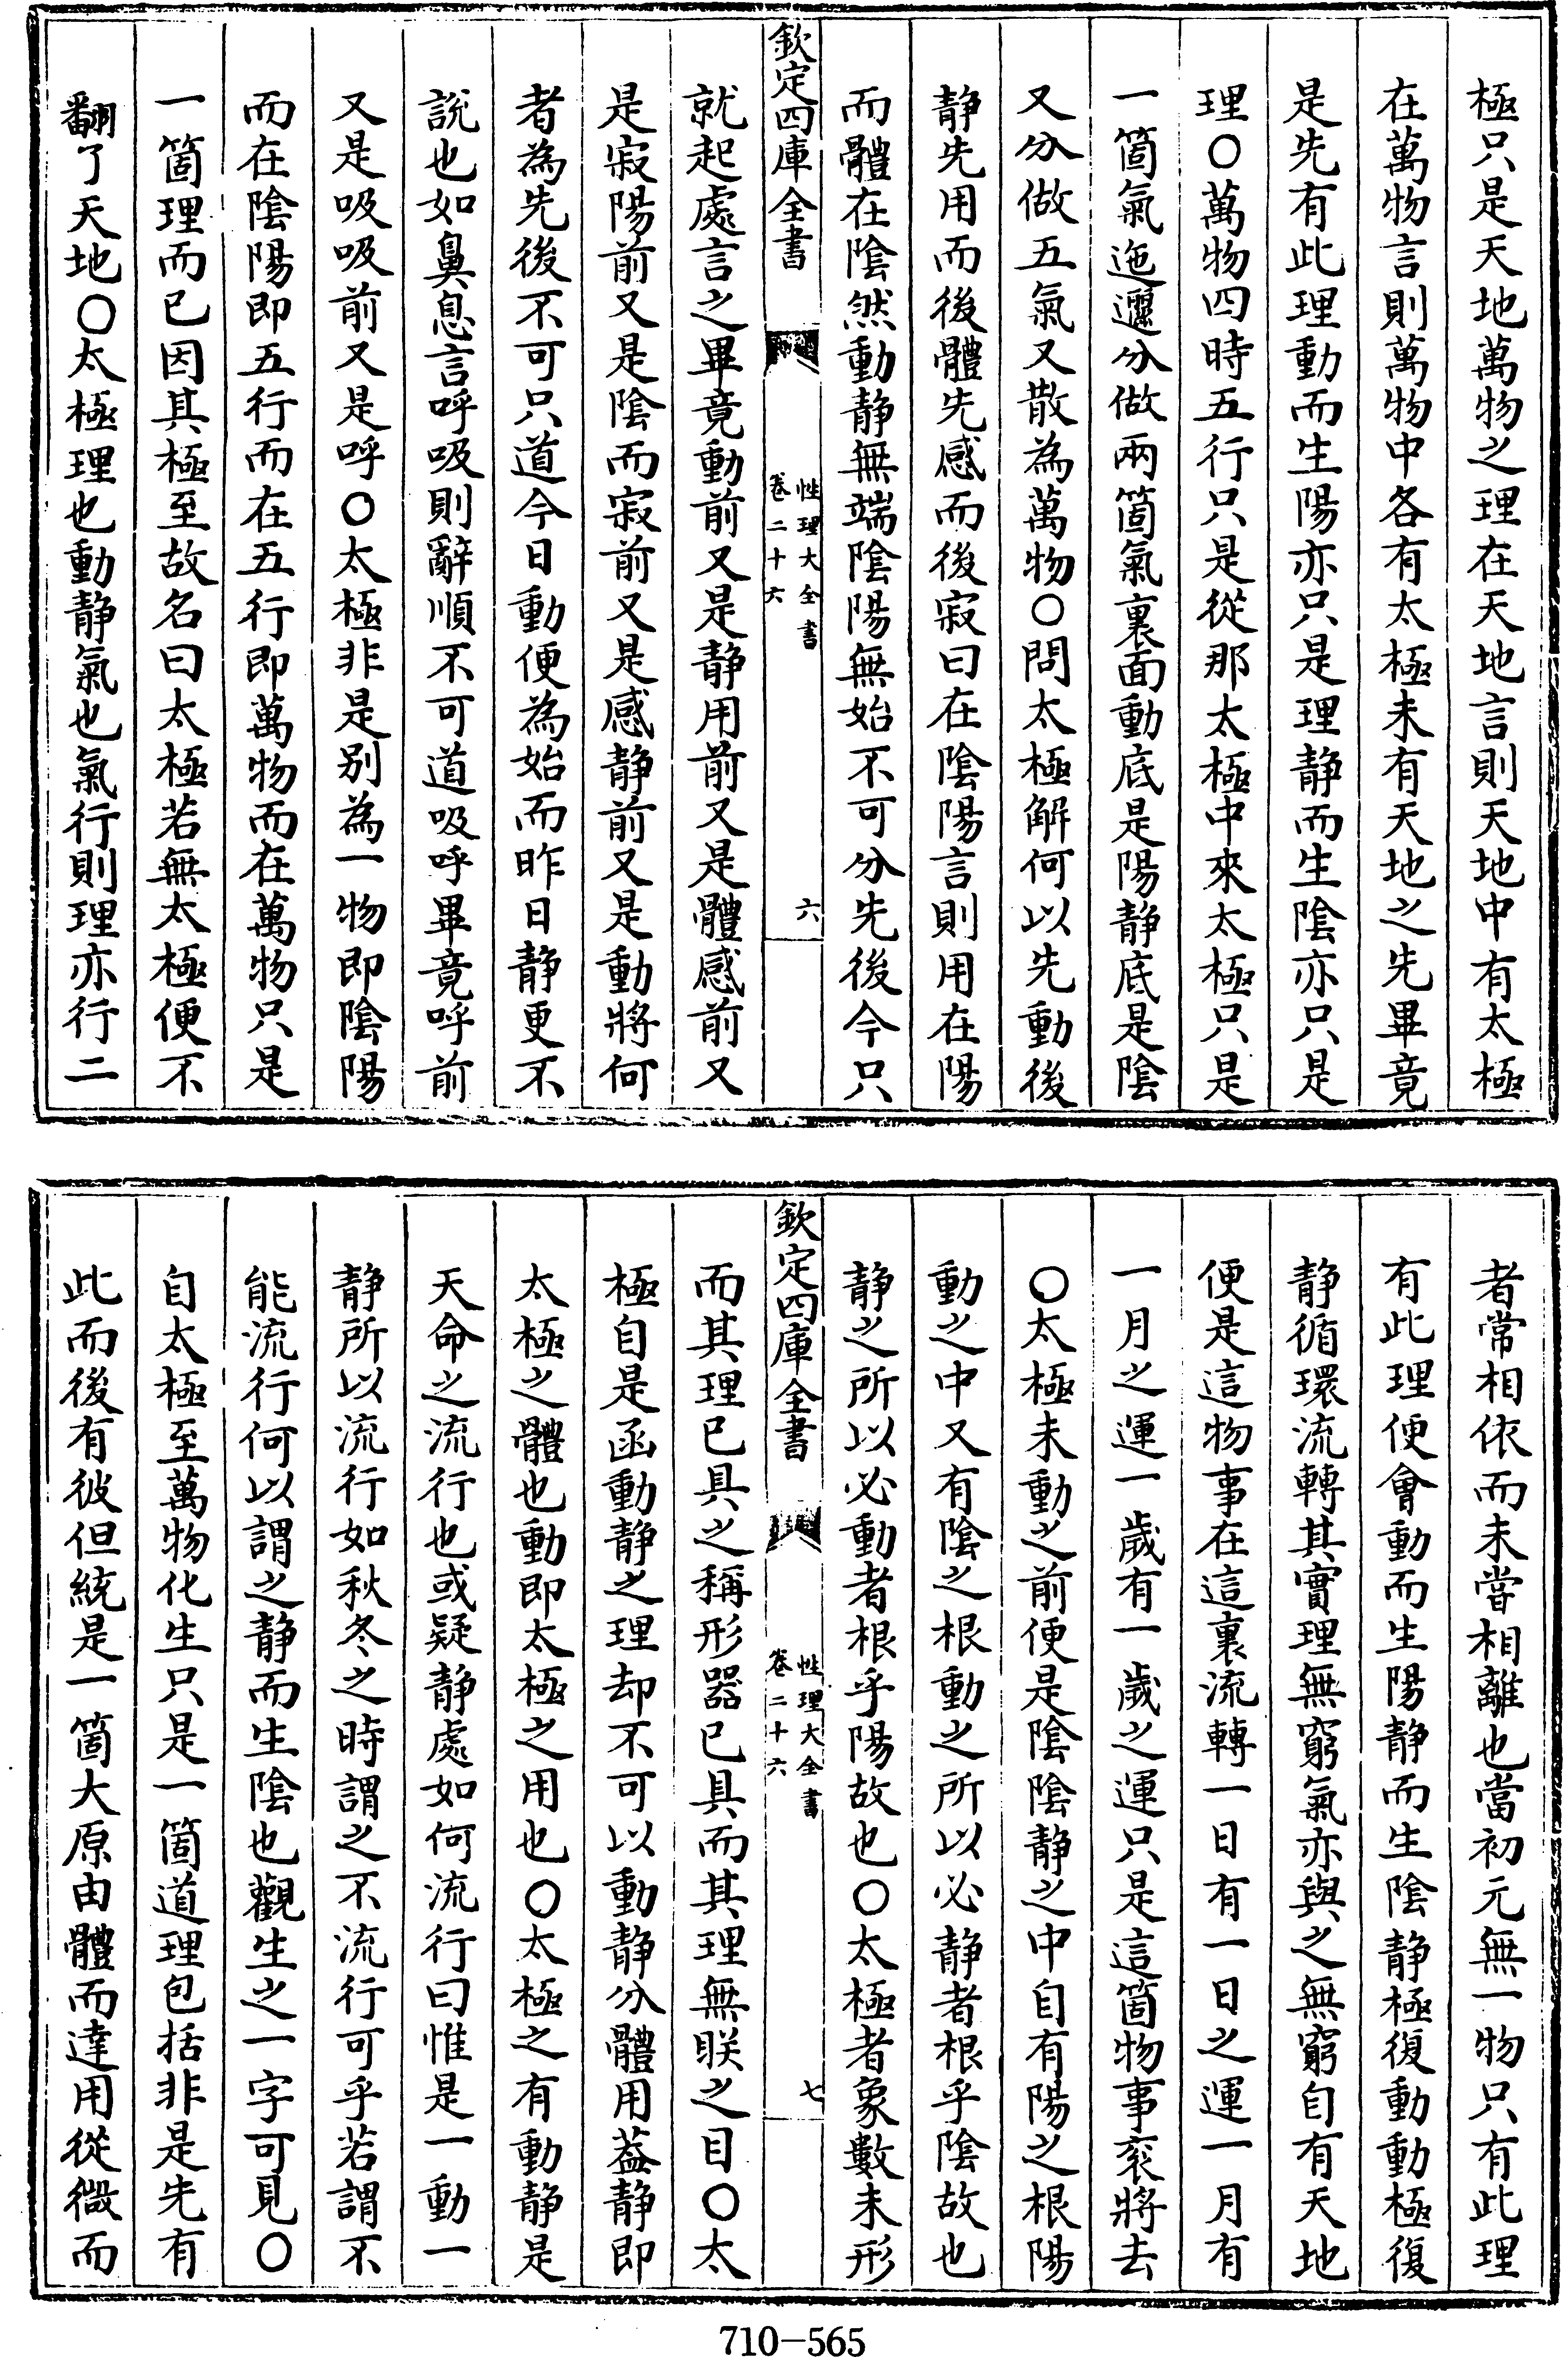 極只是天地萬物之理在天地言則天地中有太極
在萬物言則萬物中各有太極未有天地之先畢竟
是先有此理動而生陽亦只是理静而生陰亦只是
理〇萬物四時五行只是從那太極中來太極只是
一箇氣迤邐分做兩箇氣裏面動底是陽静底是陰
又分做五氣又散為萬物〇問太極解何以先動後
静先用而後體先感而後寂曰在陰陽言則用在陽
而體在陰然動静無端陰陽無始不可分先後今只
欽定四庫全書
性理大全書
卷二十六
六
就起處言之畢竟動前又是静用前又是體感前又
是寂陽前又是陰而寂前又是感静前又是動將何
者為先後不可只道今日動便為始而昨日静更不
說也如鼻息言呼吸則辭順不可道吸呼畢竟呼前
又是吸吸前又是呼〇太極非是别為一物即陰陽
而在陰陽即五行而在五行即萬物而在萬物只是
一箇理而已因其極至故名曰太極若無太極便不
翻了天地〇太極理也動静氣也氣行則理亦行二
者常相依而未嘗相離也當初元無一物只有此理
有此理便會動而生陽静而生陰静極復動動極復
静循環流轉其實理無窮氣亦與之無窮自有天地
便是這物事在這裏流轉一日有一日之運一月有
一月之運一歲有一歲之運只是這箇物事衮將去
〇太極未動之前便是陰陰静之中自有陽之根陽
動之中又有陰之根動之所以必静者根乎陰故也
静之所以必動者根乎陽故也〇太極者象數未形
欽定四庫全書
性理大全書
卷二十六
七
而其理已具之稱形器已具而其理無眹之目〇太
極自是函動静之理却不可以動静分體用葢静即
太極之體也動即太極之用也〇太極之有動静是
天命之流行也或疑静處如何流行曰惟是一動一
静所以流行如秋冬之時謂之不流行可乎若謂不
能流行何以謂之静而生陰也觀生之一字可見〇
自太極至萬物化生只是一箇道理包括非是先有
此而後有彼但統是一箇大原由體而達用從微而
710-565